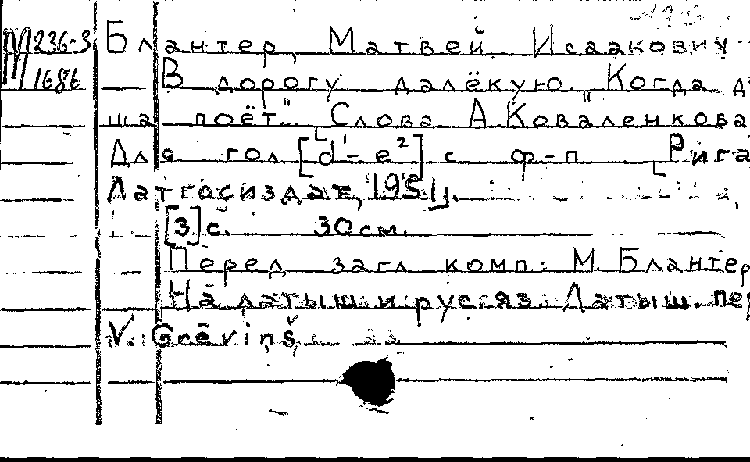 М 236-3 Блантер, Матвей Исаакович
М 1686 В дорогу далёкую. "Когда ду
ша поёт". Слова А. Коваленкова
Для гол. [d'-e²] с ф-п. Рига,
Латгосиздат, 1951.
[3] с. 30 см.
Перед загл. комп.: М. Блантер
На латыш. и рус. яз. Латыш. пер
V. Grēviņš.